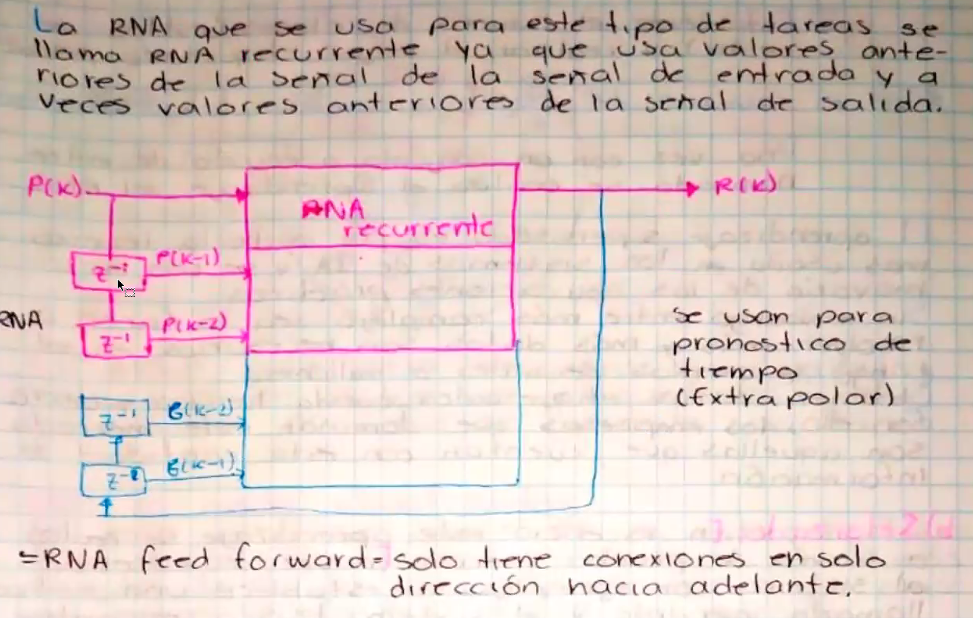 La RNA que se usa para este tipo de tareas se
llama RNA recurrente ya que usa valores ante-
riores de la señal de la señal de entrada y a
veces valores anteriores de la señal de salida.
P(K)
R(K)
RNA
recurrente
z⁻¹
P(K-1)
RNA
z⁻¹
P(K-2)
se usan para
pronostico de
tiempo
(Extrapolar)
z⁻¹
(K-2)
(K-1)
=RNA feed forward= solo tiene conexiones en solo
dirección hacia adelante.